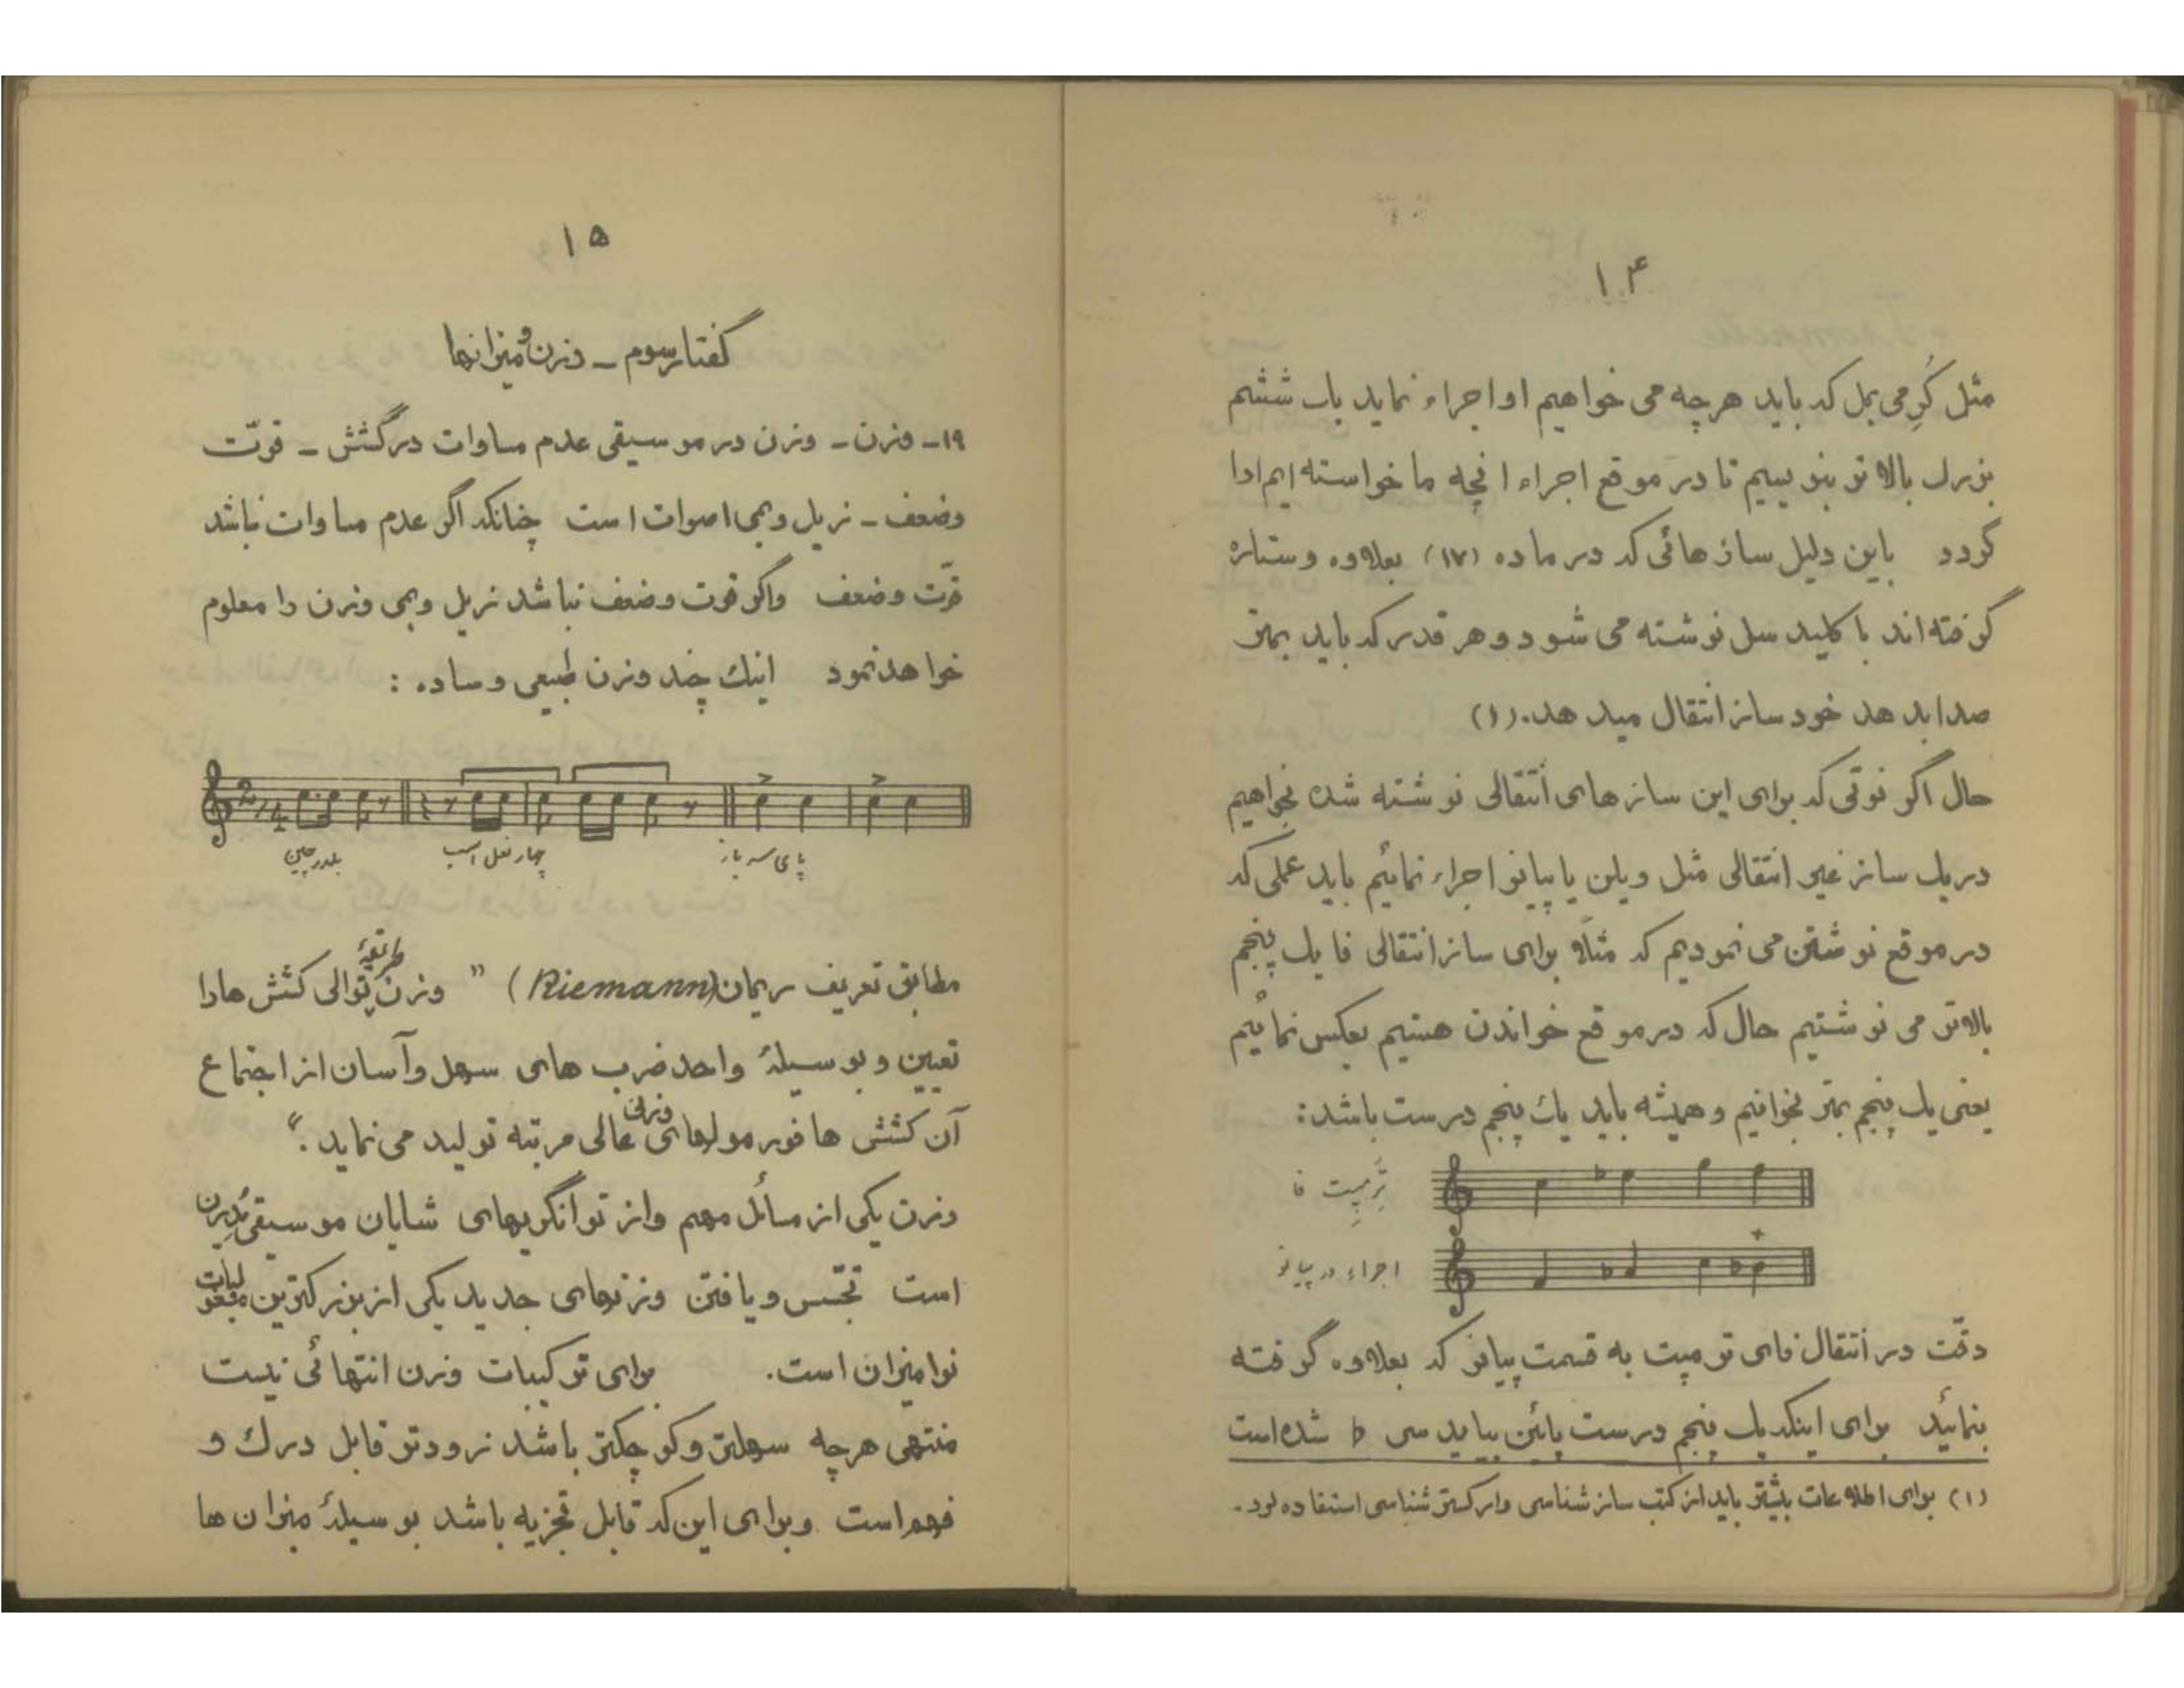 ۱۴
مثل کُرِ می بمل که باید هرچه می خواهیم او اجراء نماید باب ششم
بزرك بالا تر بنویسیم تا در موقع اجراء انچه ما خواسته ایم ادا
گردد باین دلیل سازهائی که در ماده (۱۷) بعلاوه و ستاره
گرفته اند با کلید سل نوشته می شود و هر قدر که باید بمتر
صدا بدهد خود ساز انتقال میدهد. (۱)
حال اگر نوتی که برای این سازهای انتقالی نوشته شده بخواهیم
در یك ساز غیر انتقالی مثل ویلن یا پیانو اجراء نمائیم باید عملی که
در موقع نوشتن می نمودیم که مثلًا برای ساز انتقالی فا یك پنجم
بالاتر می نوشتیم حال که در موقع خواندن هستیم بعکس نمائیم
یعنی یك پنجم بمتر بخوانیم و همیشه باید یك پنجم درست باشد:
تِرُمپِیت فا
اجراء در پیانو
دقّت در انتقال فای ترمپت به قسمت پیانو که بعلاوه گرفته
بنمائید برای اینکه یك پنجم درست پائین بیاید سی b شده است
(۱) برای اطلاعات بیشتر باید از کتب سازشناسی و ارکسترشناسی استفاده نمود.
۱۵
گفتار سوم ـ وزن و میزانها
۱۹ـ وزن ـ وزن در موسیقی عدم مساوات در کشش ـ قوّت
وضعف ـ زیل و بمی اصوات است چنانکه اگر عدم مساوات نباشد
قوّت وضعف واگر قوت وضعف نباشد زیل و بمی وزن را معلوم
خواهد نمود اینك چند وزن طبیعی و ساده :
2/4
بلدرچین چهار نعل اسب پای سرباز
مطابق تعریف ریمان (Riemann) " وزن طریقهٔ توالی کشش ها را
تعیین و بوسیلهٔ واحد ضرب های سهل و آسان از اجتماع
آن کشش ها فورمولهای وزنی عالی مرتبه تولید می نماید ."
وزن یکی از مسائل مهم و از توانگریهای شایان موسیقی مُدِرن
است تجسّس و یافتن وزنهای جدید یکی از بزرکترین مجهولات
نوامیزان است. برای ترکیبات وزن انتهائی نیست
منتهی هرچه سهلتر و کوچکتر باشد زودتر قابل درك و
فهم است وبرای این که قابل تجزیه باشد بوسیلهٔ میزان ها